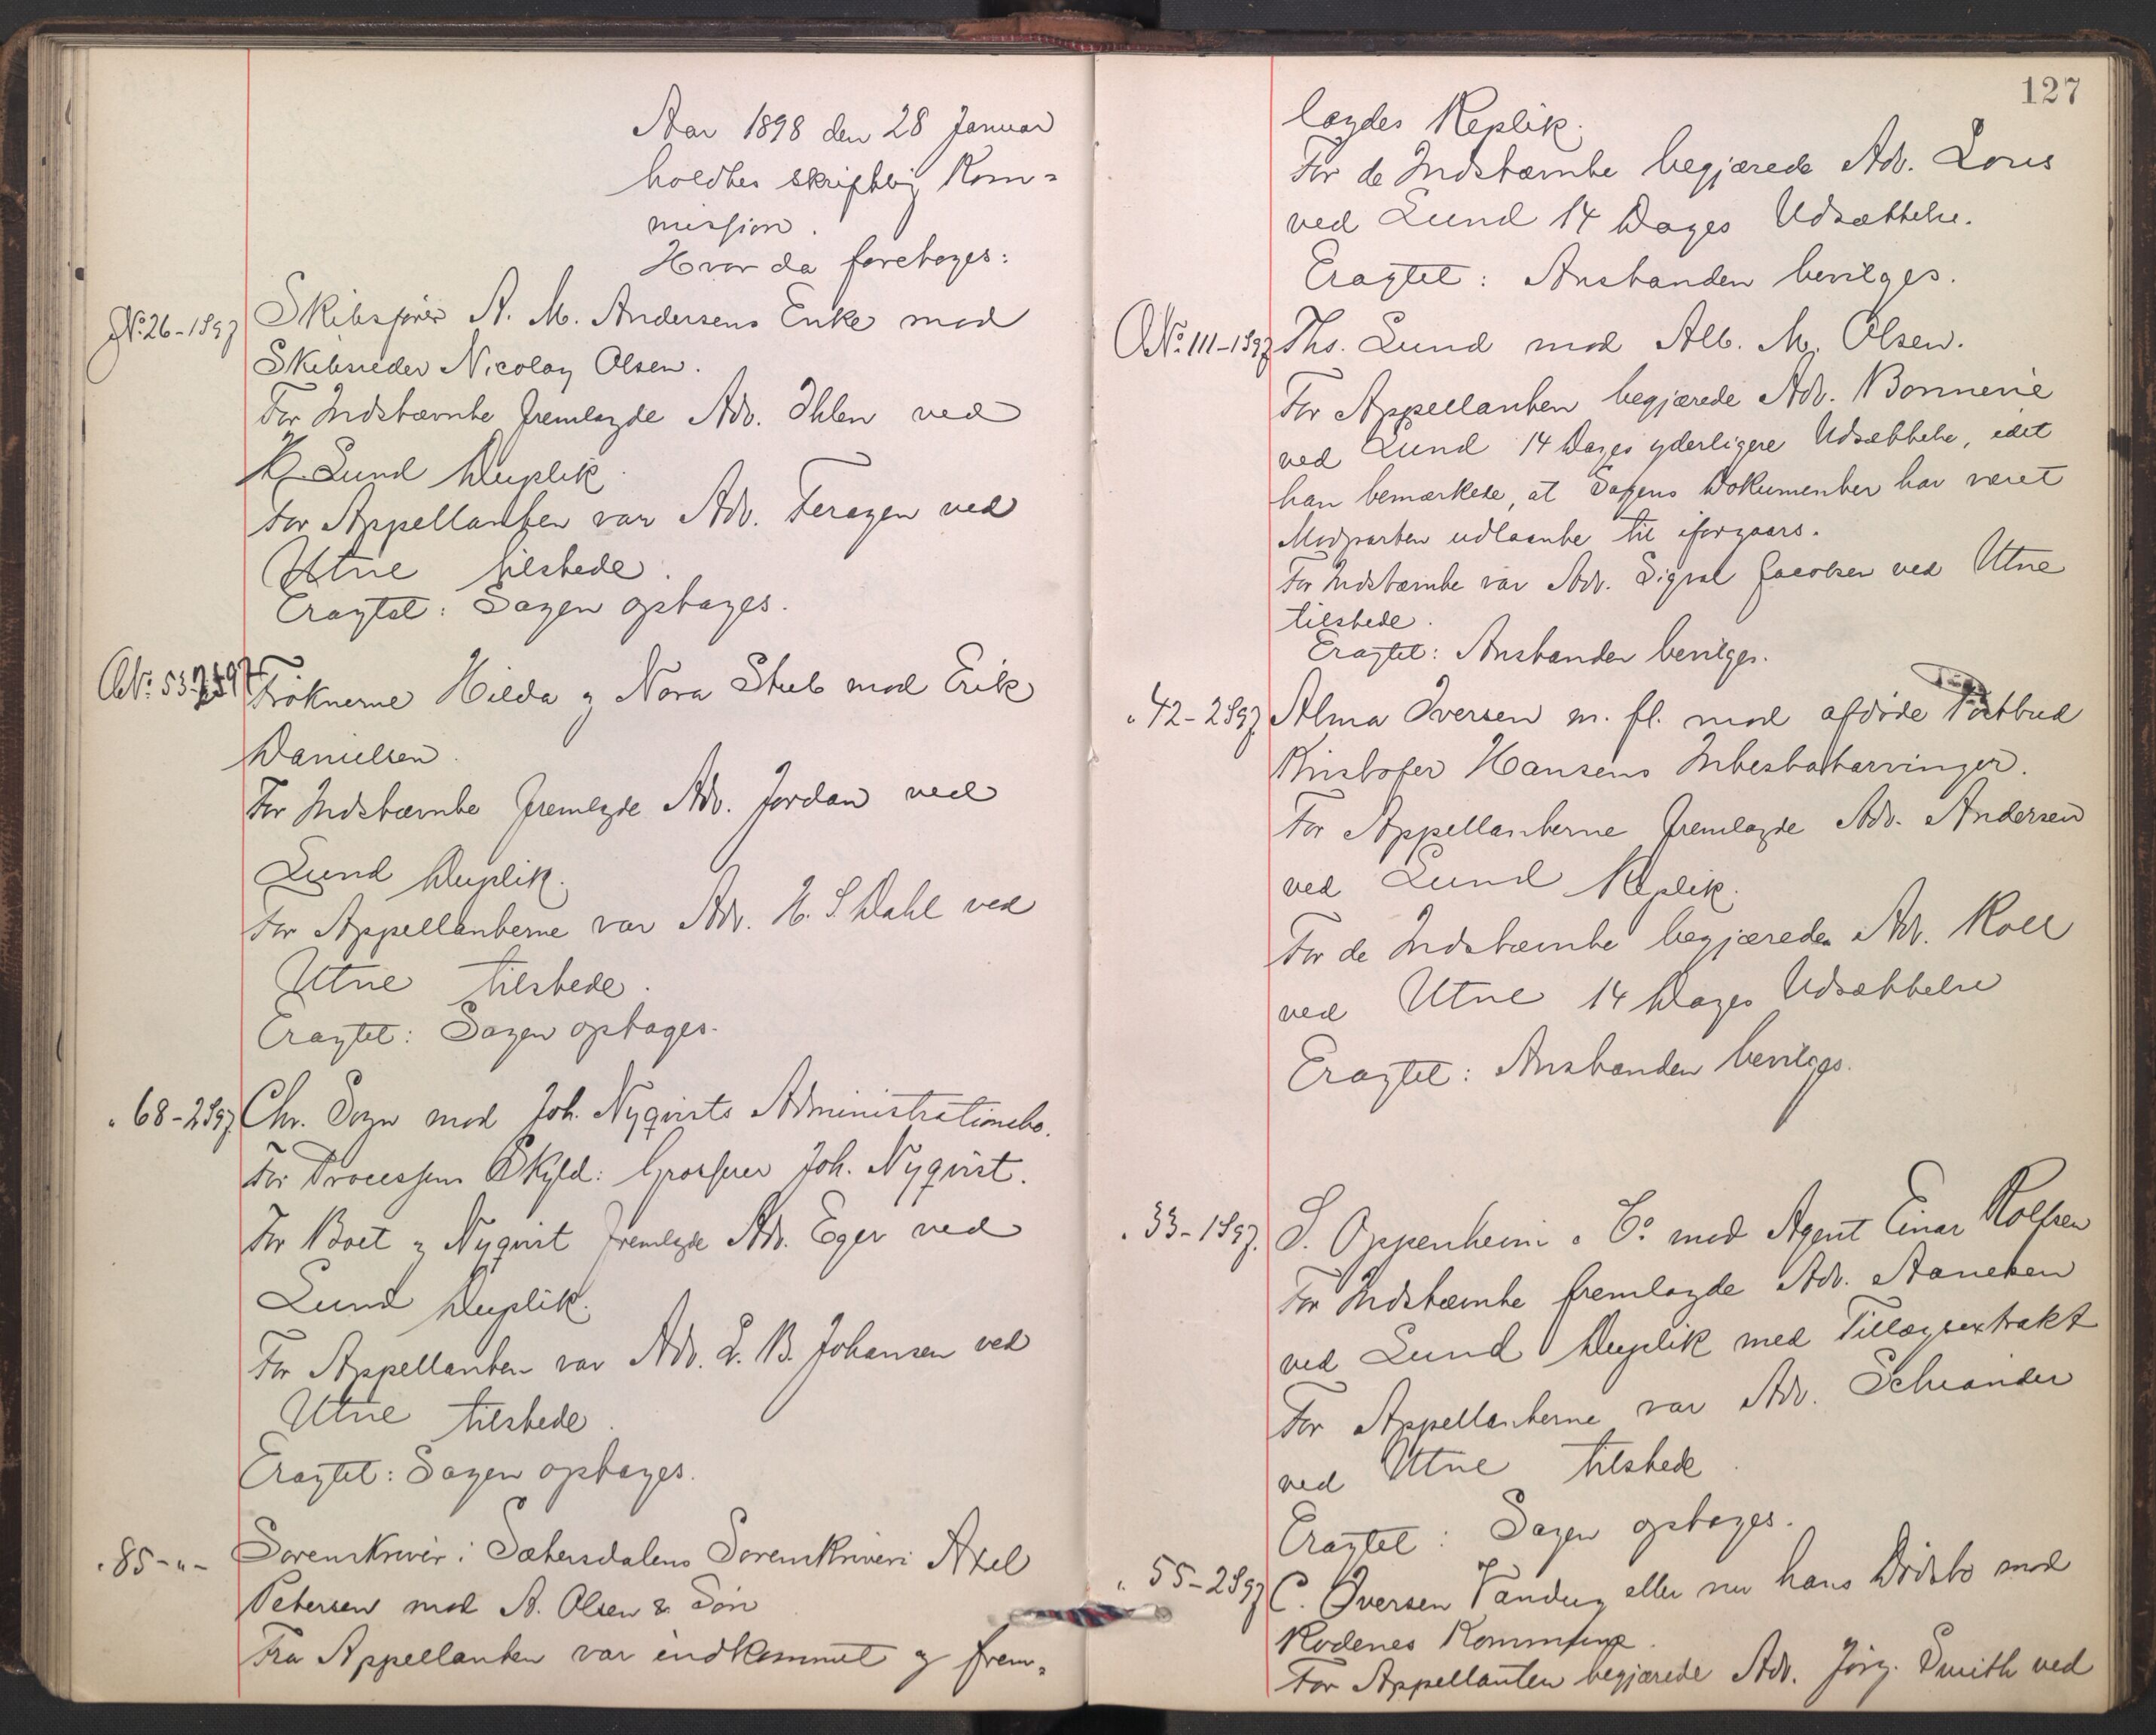 Aar 1898 den 28 Januar
holdtes skriftlig Kom=
mission.
Hvor da foretoges:
No. 26-1897 Skibsfører A. M. Andersens Enke mod
Skibsreder Nicolay Olsen.
For Indstævnte fremlagde Adv. Ihlen ved
Lund Duplik.
For Appellanten var Adv. Feragen ved
Utne tilstede.
Eragtet: Sagen optages.
No. 53-2 1897 Frøknerne Hilda og Nora Stub mod Erik
Danielsen.
For Indstævnte fremlagde Adv. Jordan ved
Lund Duplik.
For Appellanterne var Adv. H. S. Dahl ved
Utne tilstede.
Eragtet: Sagen optages.
" 68-2 1897 Chr. mod Joh. Nyqvists Administrationsbo.
For Processens Skyld: Grosserer Joh. Nyqvist.
For Boet og Nyqvist fremlagde Adv. Eger ved
Lund Duplik.
For Appellanten var Adv. L. B. Johansen ved
Utne tilstede.
Eragtet: Sagen optages.
" 85-"- Sorenskriver i Sætersdalens Sorenskriveri Axel
Petersen mod A. Olsen & Søn
Fra Appellanten var indkommet og frem=
127
lagdes Replik.
For de Indstævnte begjærede Adv. Lous
ved Lund 14 Dages Udsættelse.
Eragtet: Anstanden bevilges.
No. 111-1897 Ths. Lund mod Alb. M. Olsen.
For Appellanten begjærede Adv. Bonnevie
ved Lund 14 Dages yderligere Udsættelse, idet
han bemærkede, at Sagens Dokumenter har været
Modparten udlaante til iforgaars.
For Indstævnte var Adv. Sigval Jacobsen ved Utne
tilstede.
Eragtet: Anstanden bevilges.
" 42-2 1897 Alma Iversen m. fl. mod afdøde Postbud
Kristofer Hansens Intestatarvinger.
For Appellanterne fremlagde Adv. Andersen
ved Lund Replik.
For de Indstævnte begjærede Adv. Roll
ved Utne 14 Dages Udsættelse
Eragtet: Anstanden bevilges.
" 33-1897. S. Oppenheim & Co. mod Agent Einar Rolfsen
For Indstævnte fremlagde Adv. Aanesen
ved Lund Duplik med Tillægsextrakt
For Appellanterne var Adv. Schiander
ved Utne tilstede
Eragtet: Sagen optages.
" 55-2 1897 C. Iversen eller nu hans Dødsbo mod
Rødenes Kommune.
For Appellanten begjærede Adv. Jørg. Smith ved